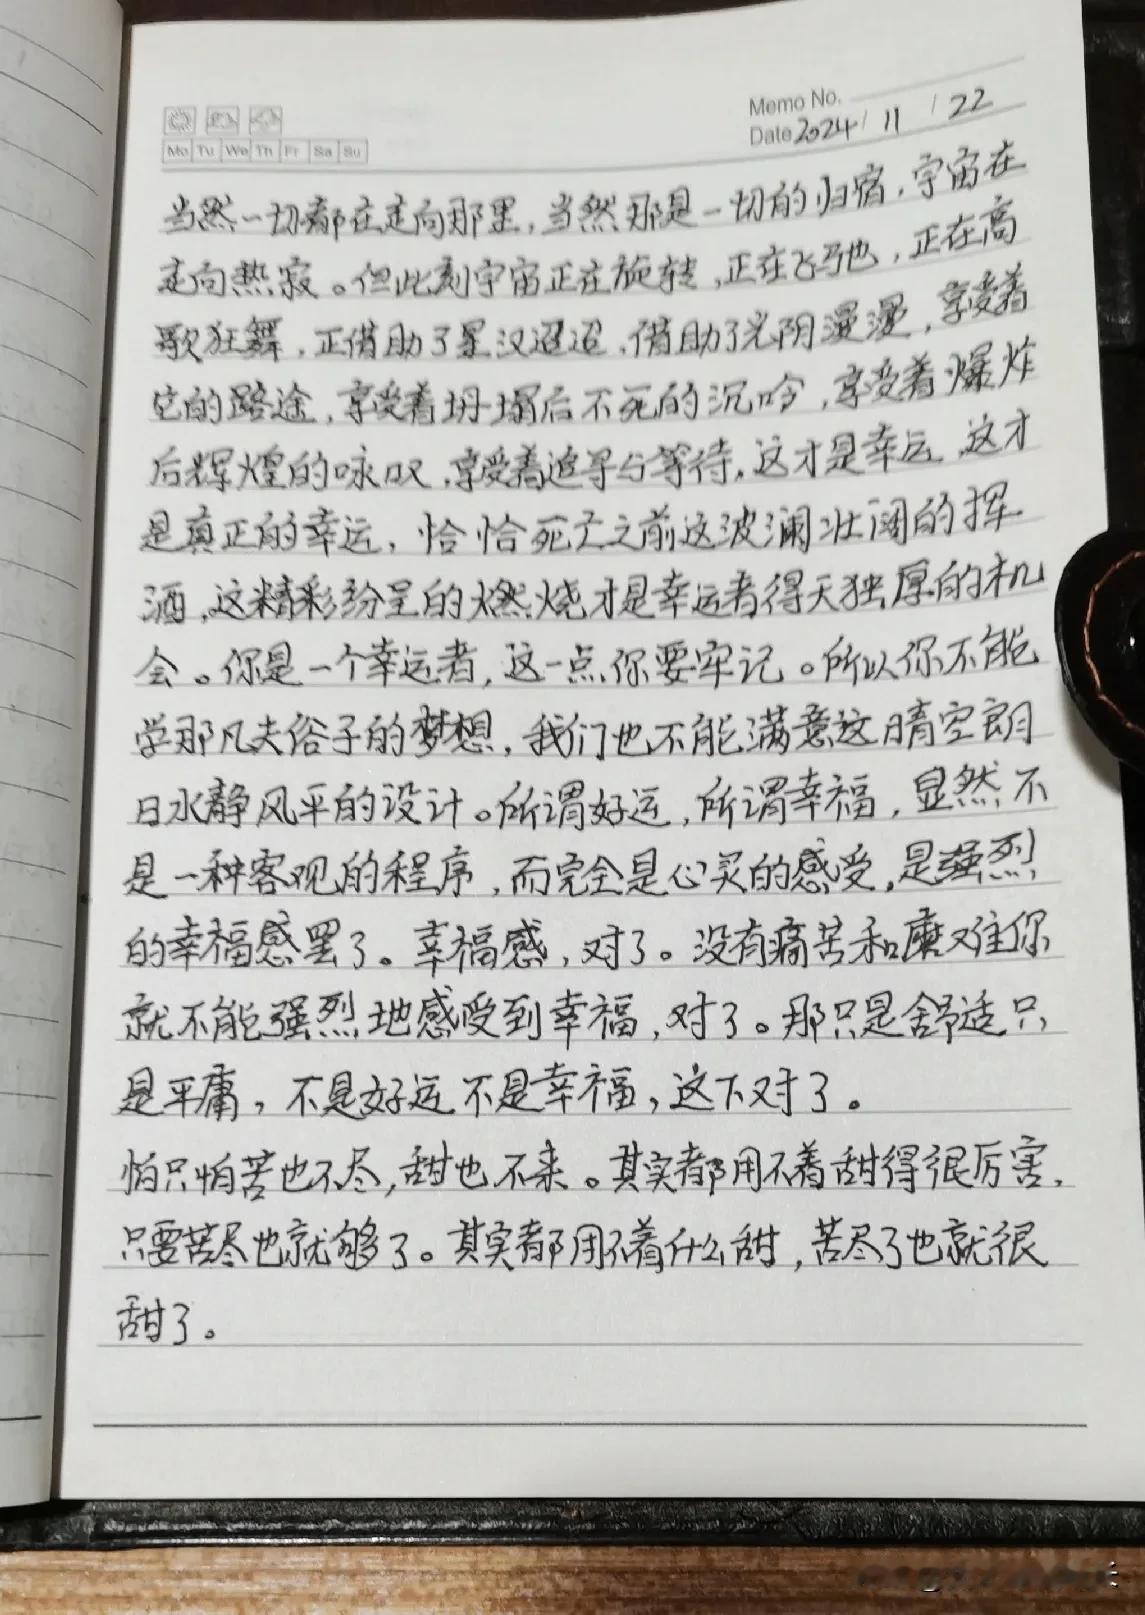 Memo No.
Date 2024/ 11 / 22
Mo Tu We Th Fr Sa Su
当然一切都在走向那里，当然那是一切的归宿，宇宙在
走向热寂。但此刻宇宙正在旋转，正在飞驰，正在高
歌狂舞，正借助了星汉迢迢，借助了光阴漫漫，享受着
它的路途，享受着坍塌后不死的沉吟，享受着爆炸
后辉煌的咏叹，享受着追寻与等待，这才是幸运，这才
是真正的幸运，恰恰死亡之前这波澜壮阔的挥
洒，这精彩纷呈的燃烧才是幸运者得天独厚的机
会。你是一个幸运者，这一点你要牢记。所以你不能
学那凡夫俗子的梦想，我们也不能满意这晴空朗
日水静风平的设计。所谓好运，所谓幸福，显然不
是一种客观的程序，而完全是心灵的感受，是强烈
的幸福感罢了。幸福感，对了。没有痛苦和磨难你
就不能强烈地感受到幸福，对了。那只是舒适只
是平庸，不是好运不是幸福，这下对了。
怕只怕苦也不尽，甜也不来。其实都用不着甜得很厉害，
只要苦尽也就够了。其实都用不着什么甜，苦尽了也就很
甜了。